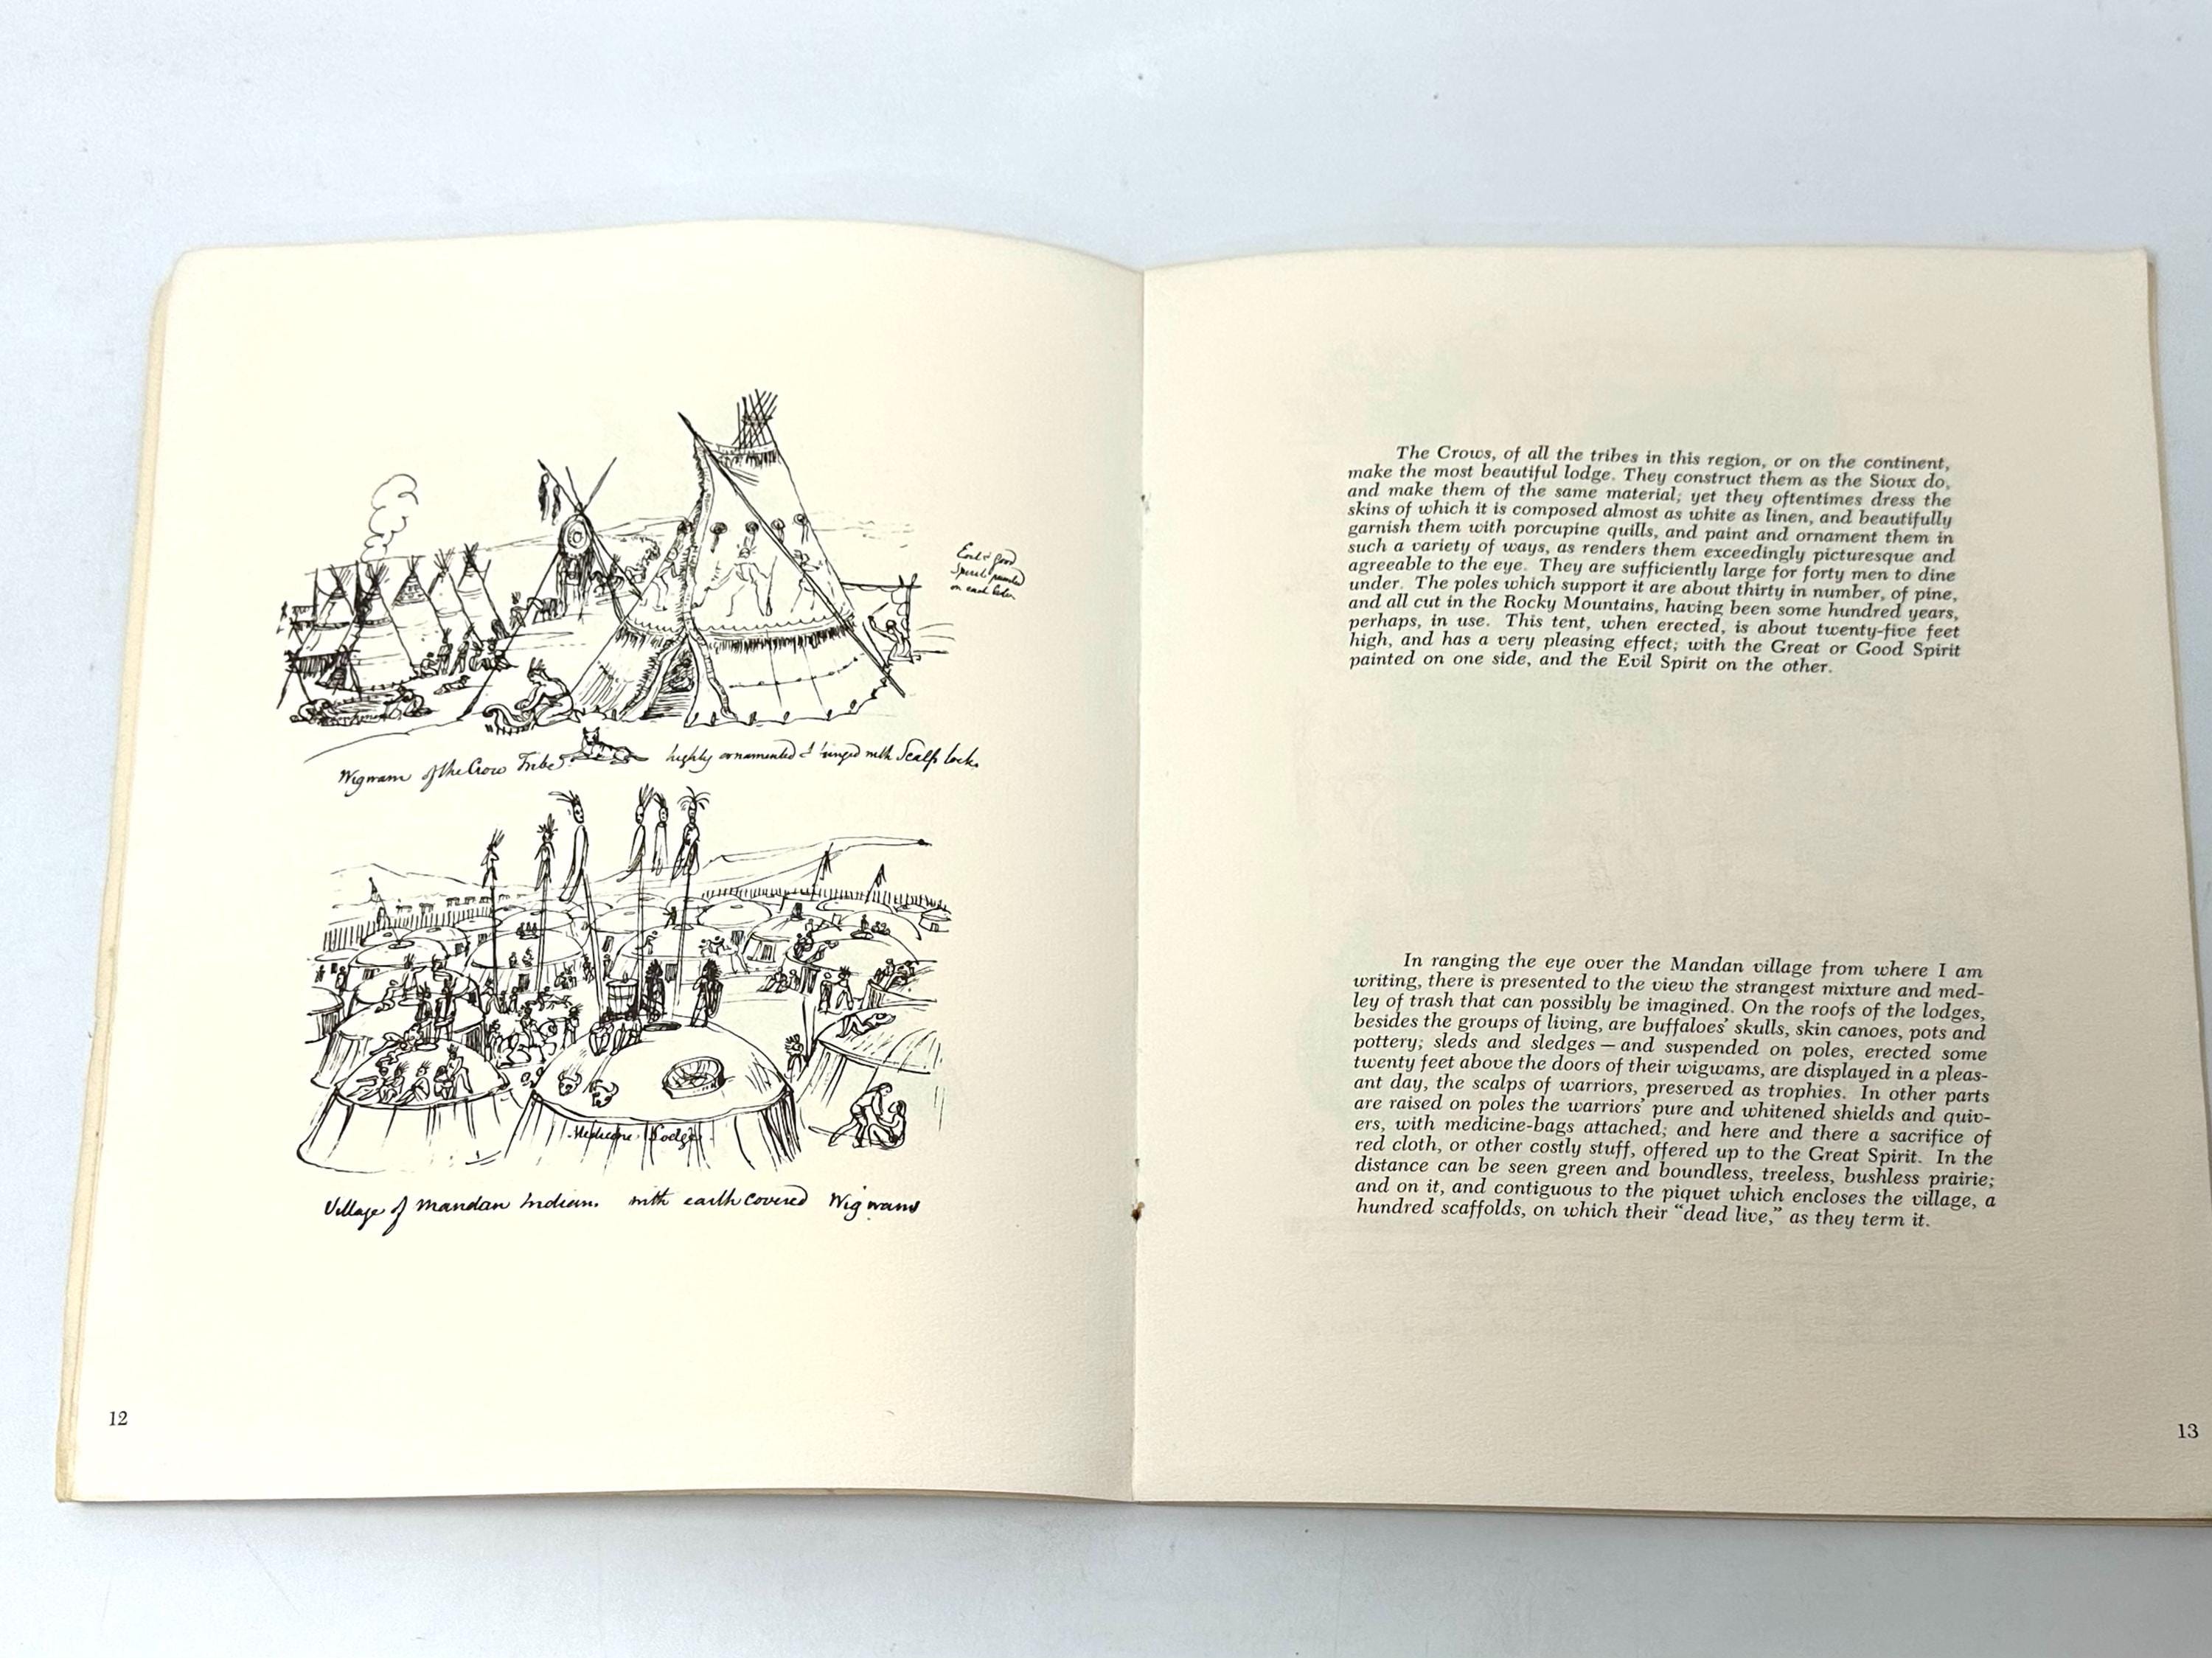 Evil & good
Spirits painted
on each side.
Wigwam of the Crow Tribe highly ornamented & fringed with Scalp locks
Medicine Lodge
Village of Mandan Indians with earth covered Wigwams
12
The Crows, of all the tribes in this region, or on the continent,
make the most beautiful lodge. They construct them as the Sioux do,
and make them of the same material; yet they oftentimes dress the
skins of which it is composed almost as white as linen, and beautifully
garnish them with porcupine quills, and paint and ornament them in
such a variety of ways, as renders them exceedingly picturesque and
agreeable to the eye. They are sufficiently large for forty men to dine
under. The poles which support it are about thirty in number, of pine,
and all cut in the Rocky Mountains, having been some hundred years,
perhaps, in use. This tent, when erected, is about twenty-five feet
high, and has a very pleasing effect; with the Great or Good Spirit
painted on one side, and the Evil Spirit on the other.
In ranging the eye over the Mandan village from where I am
writing, there is presented to the view the strangest mixture and med-
ley of trash that can possibly be imagined. On the roofs of the lodges,
besides the groups of living, are buffaloes' skulls, skin canoes, pots and
pottery; sleds and sledges — and suspended on poles, erected some
twenty feet above the doors of their wigwams, are displayed in a pleas-
ant day, the scalps of warriors, preserved as trophies. In other parts
are raised on poles the warriors' pure and whitened shields and quiv-
ers, with medicine-bags attached; and here and there a sacrifice of
red cloth, or other costly stuff, offered up to the Great Spirit. In the
distance can be seen green and boundless, treeless, bushless prairie;
and on it, and contiguous to the piquet which encloses the village, a
hundred scaffolds, on which their "dead live," as they term it.
13